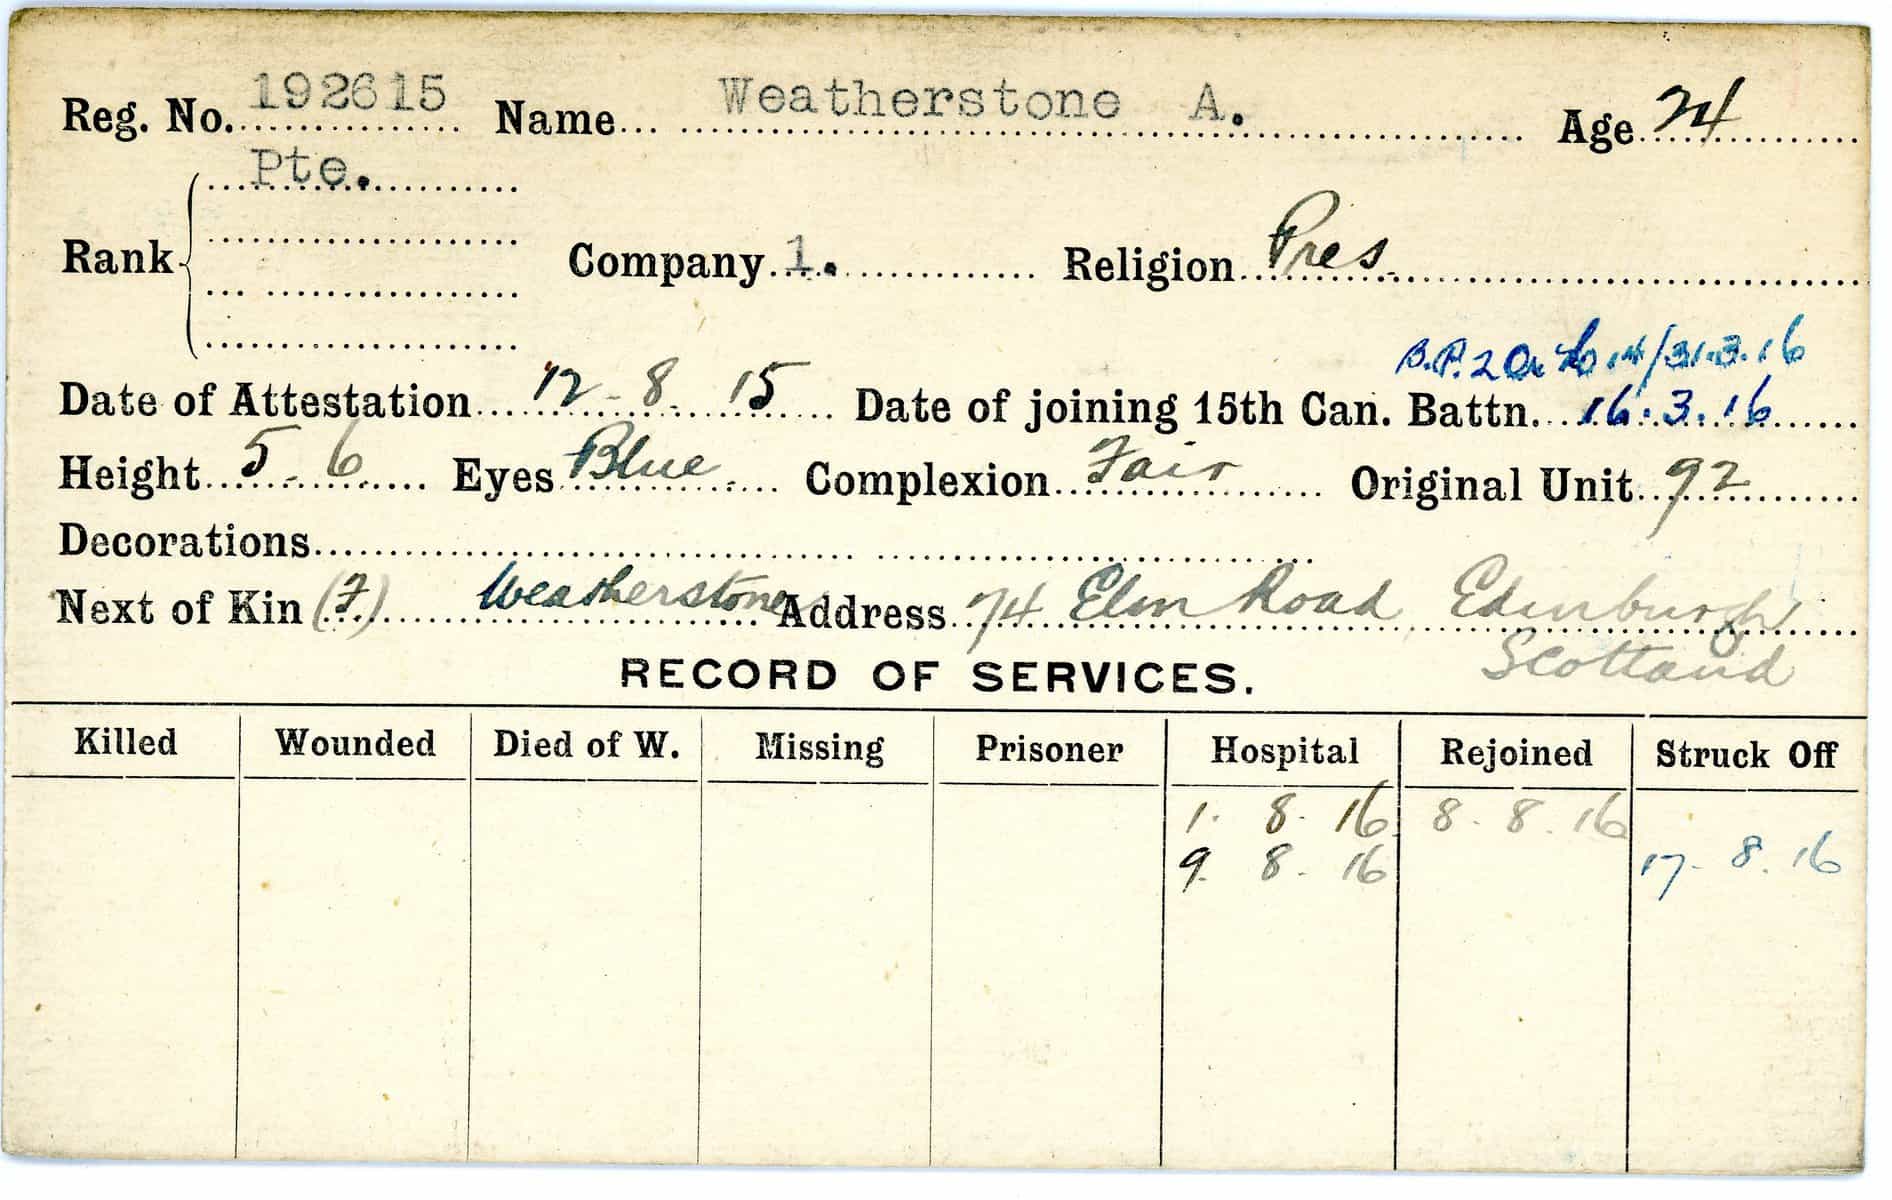 Reg. No. 192615 Name Weatherstone A. Age 24
Pte.
Rank Company 1. Religion Pres.
B.P. 2 14/31.3.16
Date of Attestation 12-8-15 Date of joining 15th Can. Battn. 16.3.16
Height 5-6 Eyes Blue. Complexion Fair Original Unit 92
Decorations
Next of Kin (F) Weatherstone Address 74 Elm Road, Edinburgh
Scotland
RECORD OF SERVICES.
Killed Wounded Died of W. Missing Prisoner Hospital Rejoined Struck Off
1. 8. 16 8. 8. 16
9. 8. 16 17. 8. 16